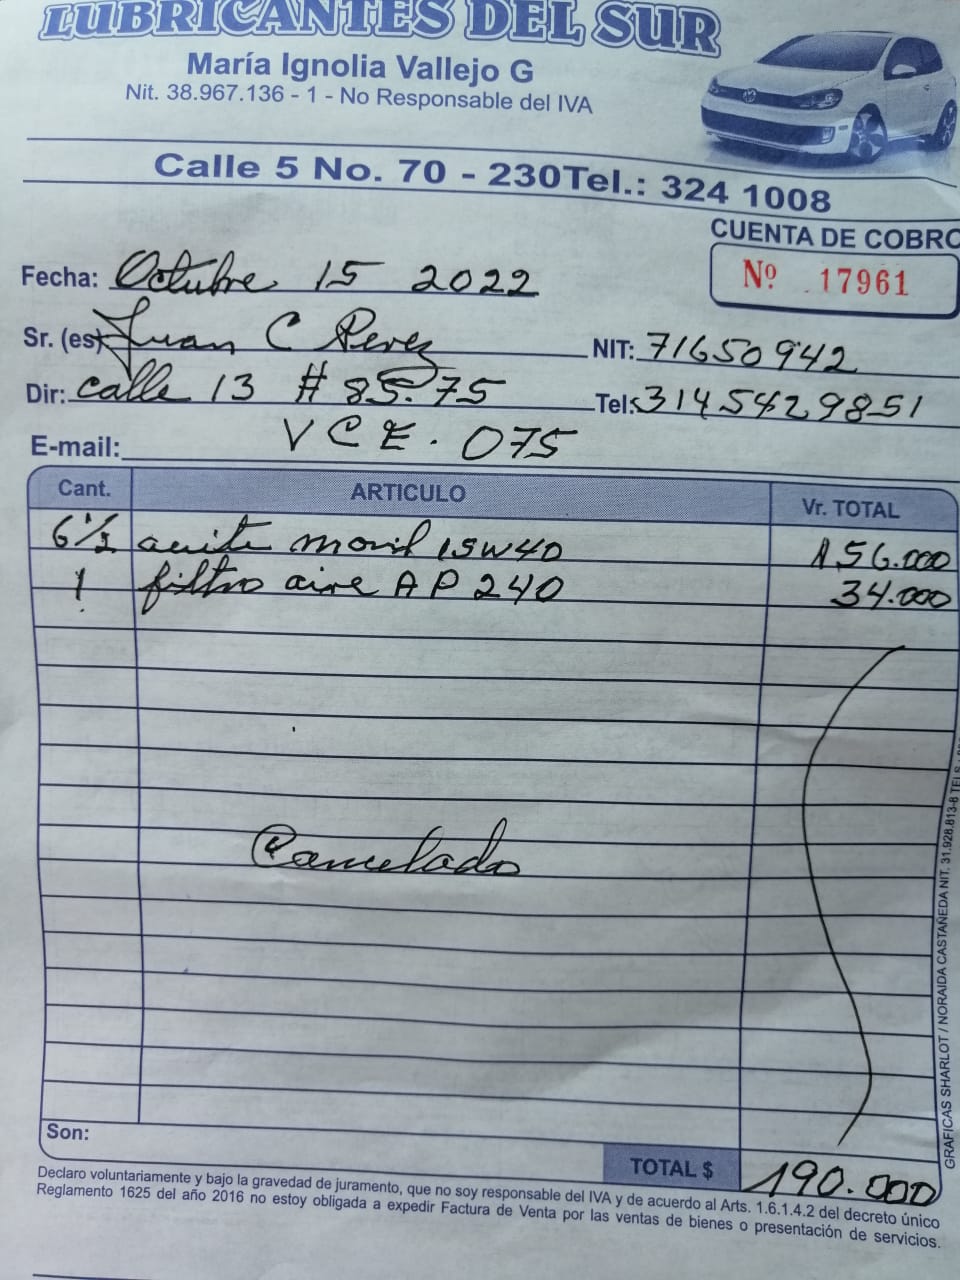 LUBRICANTES DEL SUR
María Ignolia Vallejo G
Nit. 38.967.136 - 1 - No Responsable del IVA
Calle 5 No. 70 - 230Tel.: 324 1008
CUENTA DE COBRO
Nº 17961
Fecha: Octubre 15 2022
Sr. (es) Juan C Perez NIT: 71650942
Dir: calle 13 # 85-75 Tel: 3145429851
E-mail: VCE. 075
Cant. ARTICULO Vr. TOTAL
6 1/2 aceite movil 15W40 156.000
1 filtro aire AP 240 34.000
Cancelado
Son:
TOTAL $ 190.000
Declaro voluntariamente y bajo la gravedad de juramento, que no soy responsable del IVA y de acuerdo al Arts. 1.6.1.4.2 del decreto único
Reglamento 1625 del año 2016 no estoy obligada a expedir Factura de Venta por las ventas de bienes o presentación de servicios.
GRAFICAS SHARLOT / NORAIDA CASTAÑEDA NIT. 31.928.813-8 TELS.: